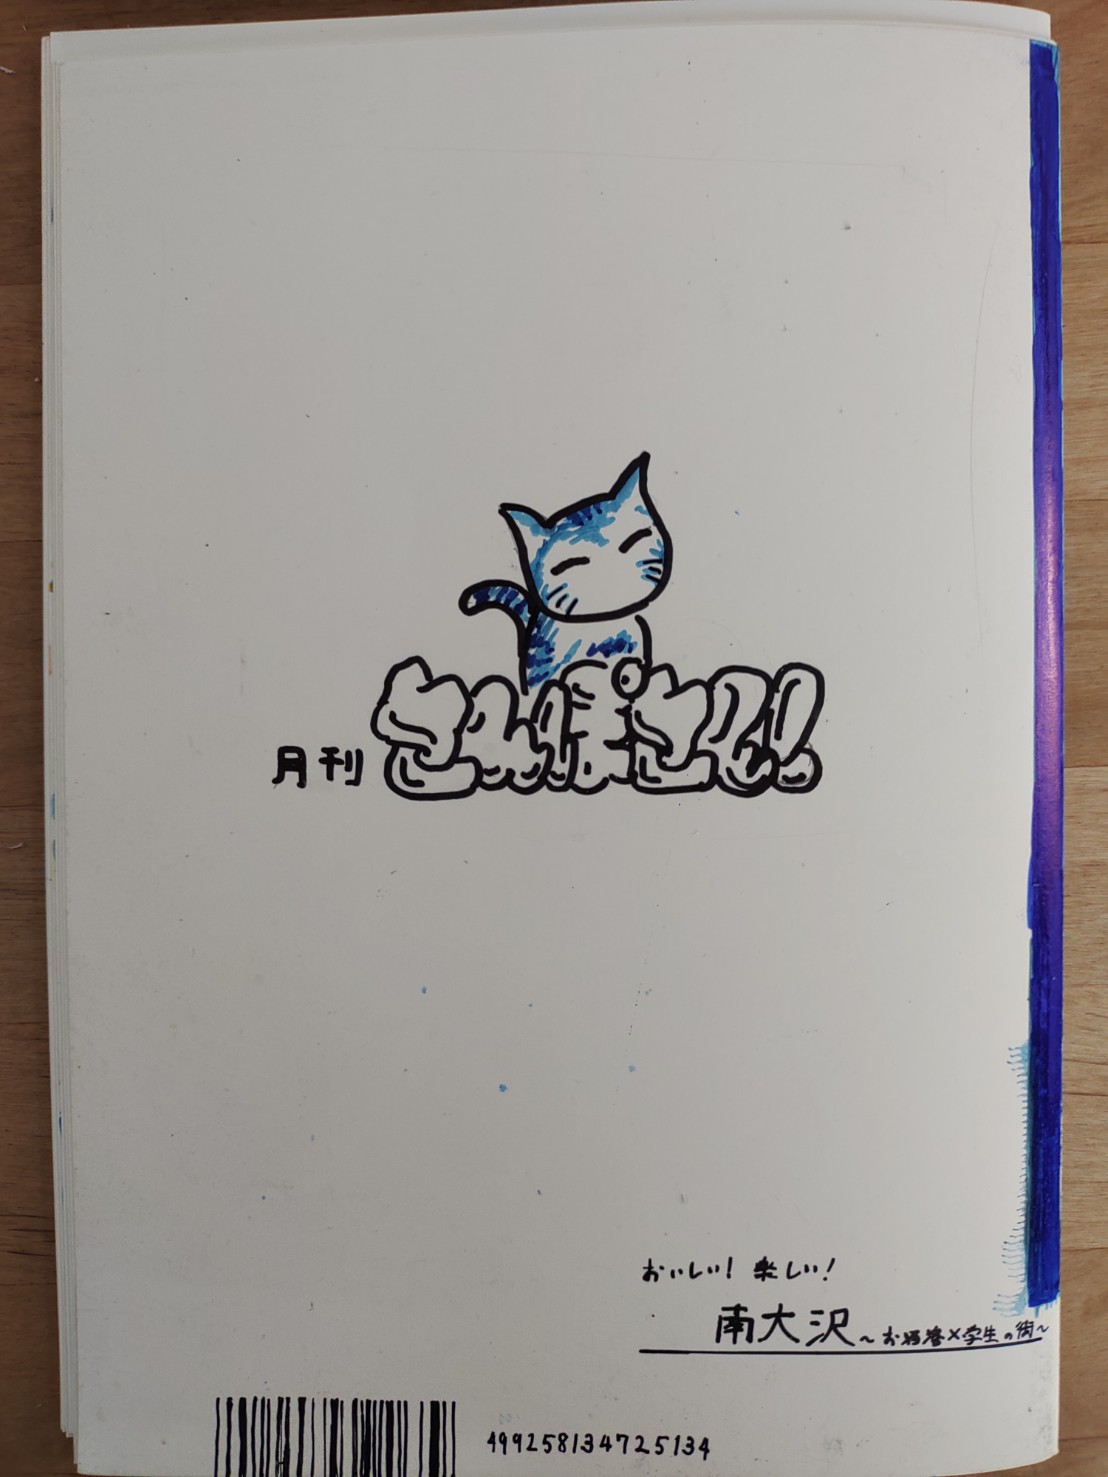 月刊 さんぽさんぽ!
おいしい! 楽しい!
南大沢 〜お洒落×学生の街〜
499258134725134